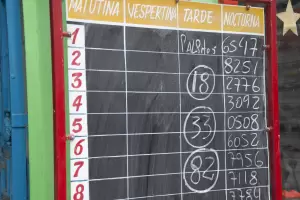 MATUTINA VESPERTINA TARDE NOCTURNA
1 6547
2 8251
3 18 2776
4 3092
5 33 0508
6 6052
7 82 7956
8 7118